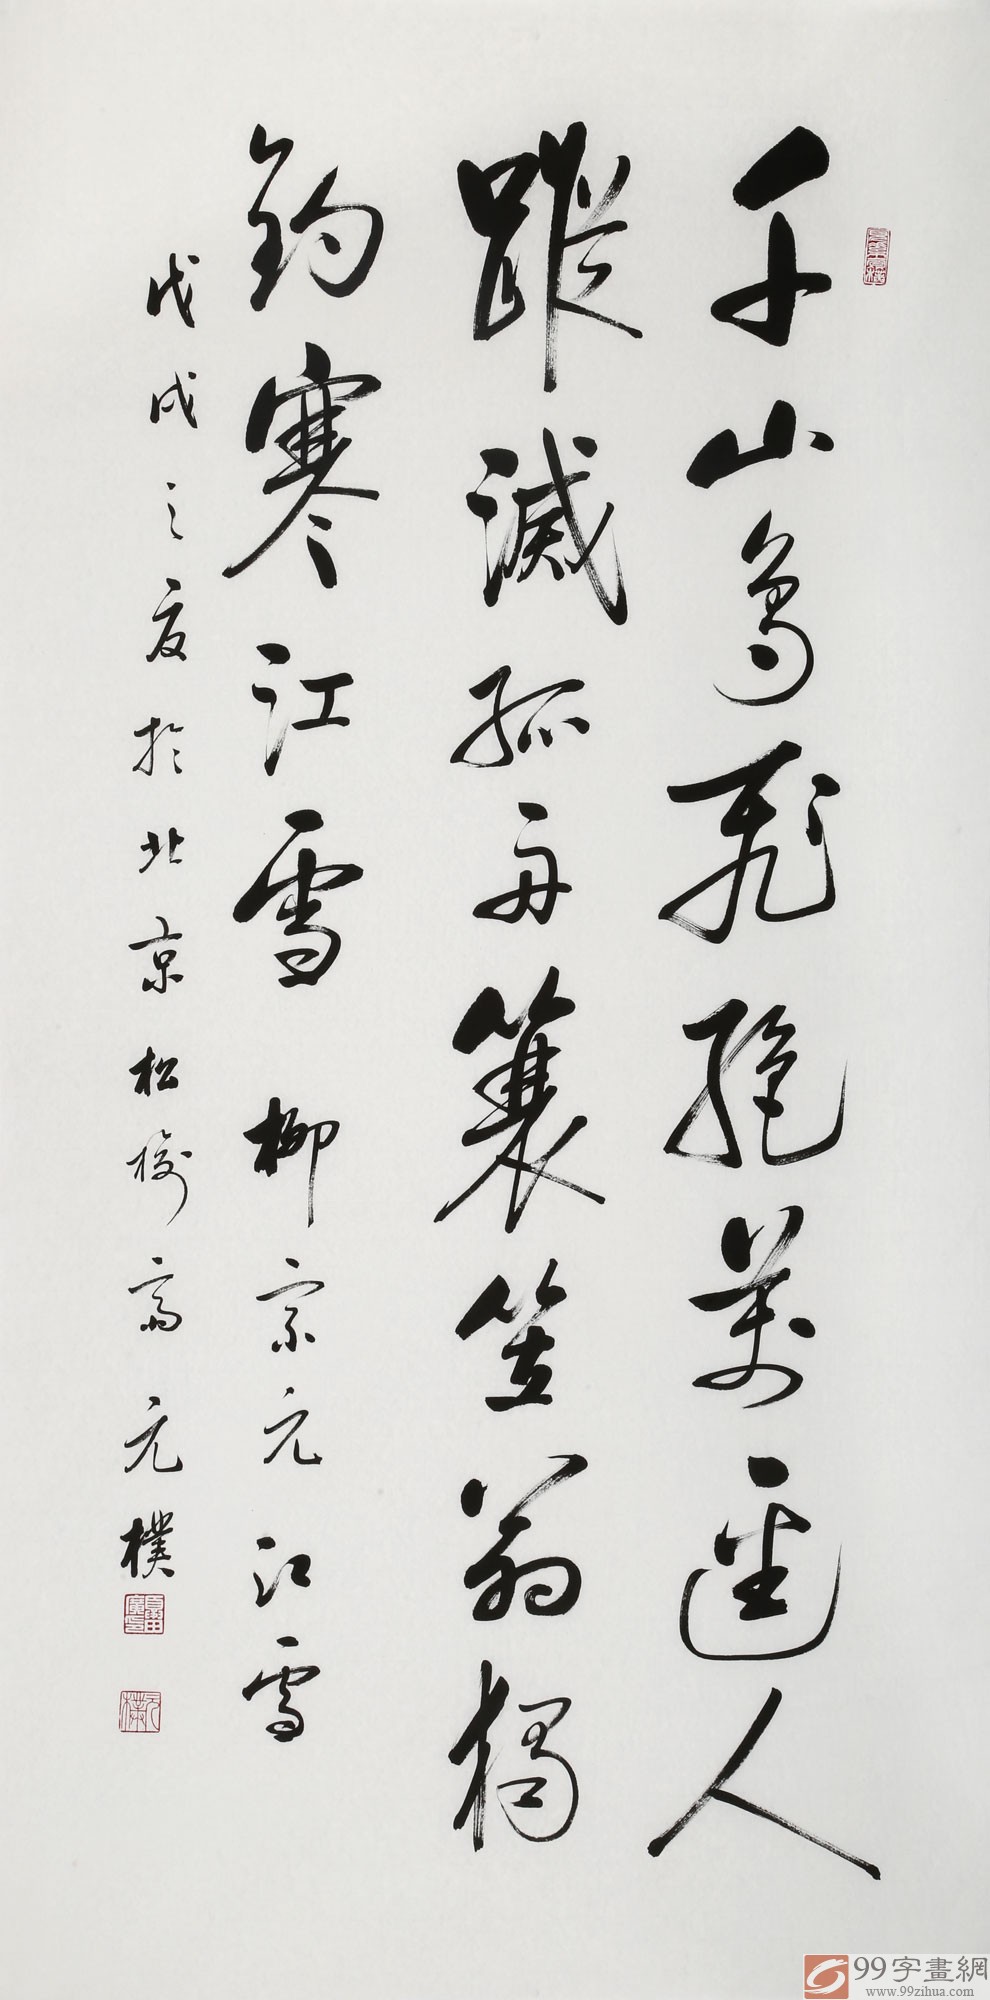 千山鳥飛絕萬逕人
蹤滅孤舟簑笠翁獨
釣寒江雪 柳宗元江雪
戊戌之夏於北京松齋元樸
99字畫網
www.99zihua.com